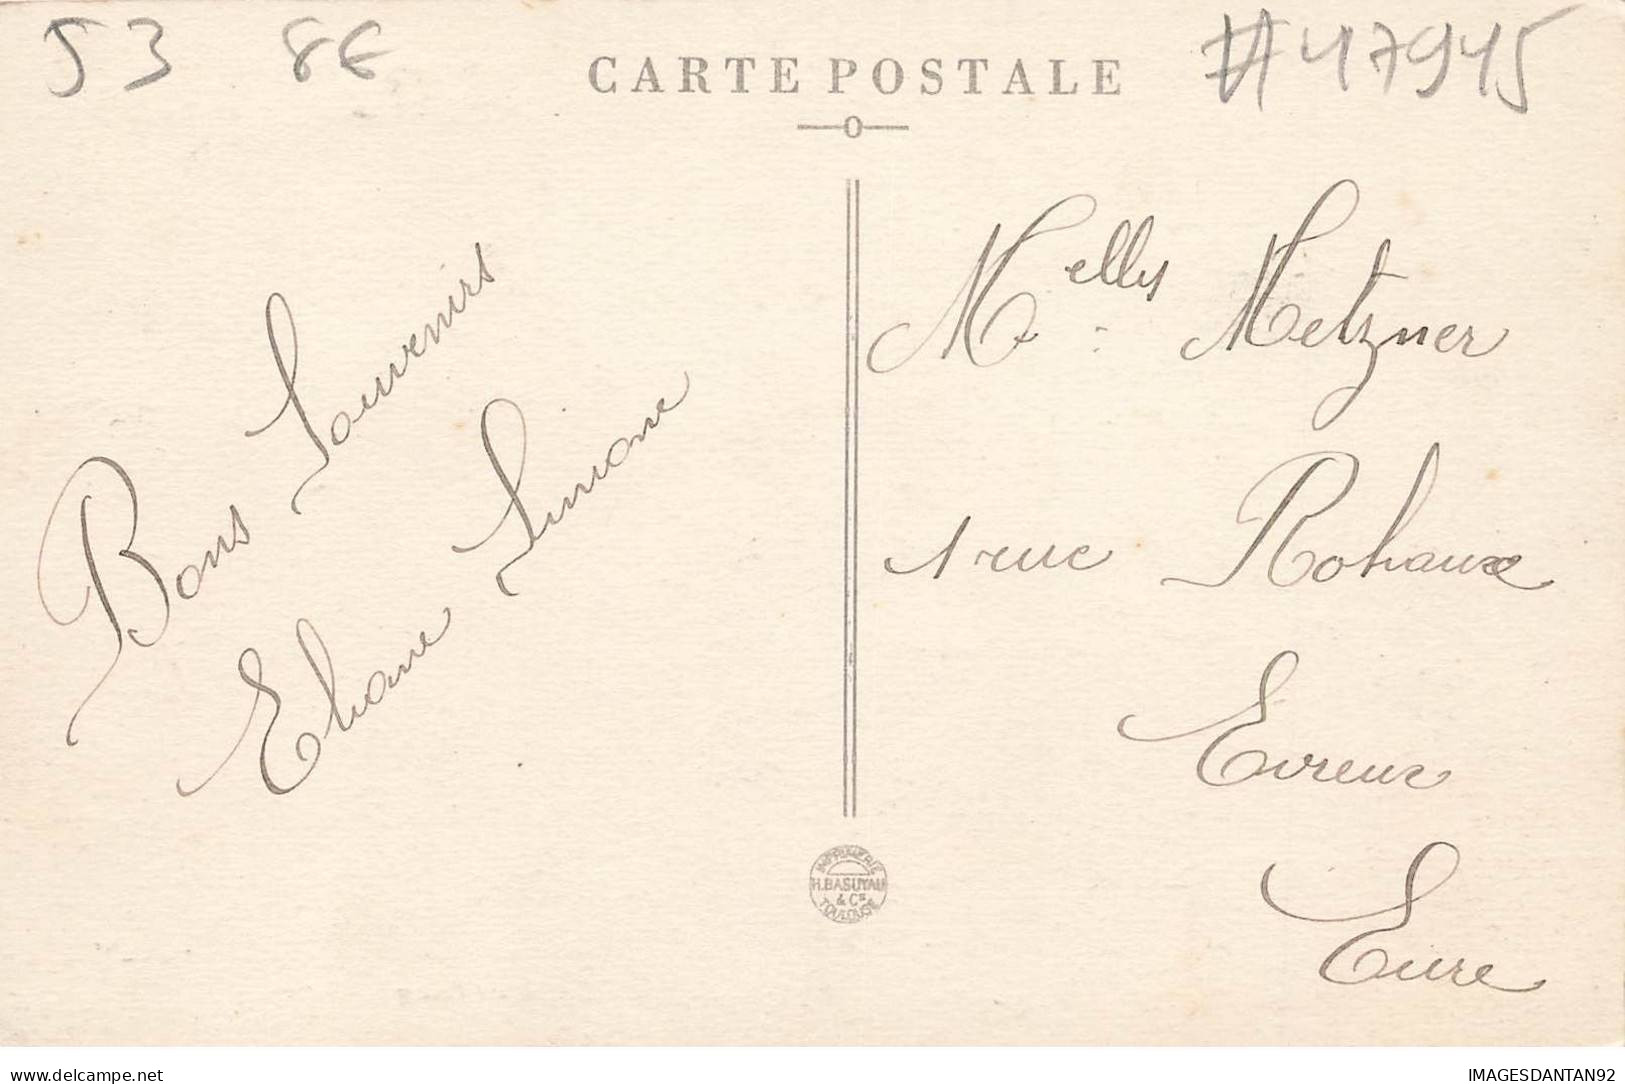 53 8€ #47915
CARTE POSTALE
Bons Souvenirs
Eliane Simone
Melles Metzner
1 rue Rohaux
Evreux
Eure
IMPRIMERIE
H. BASUYAU
& Cie
TOULOUSE
www.delcampe.net
IMAGESDANTAN92